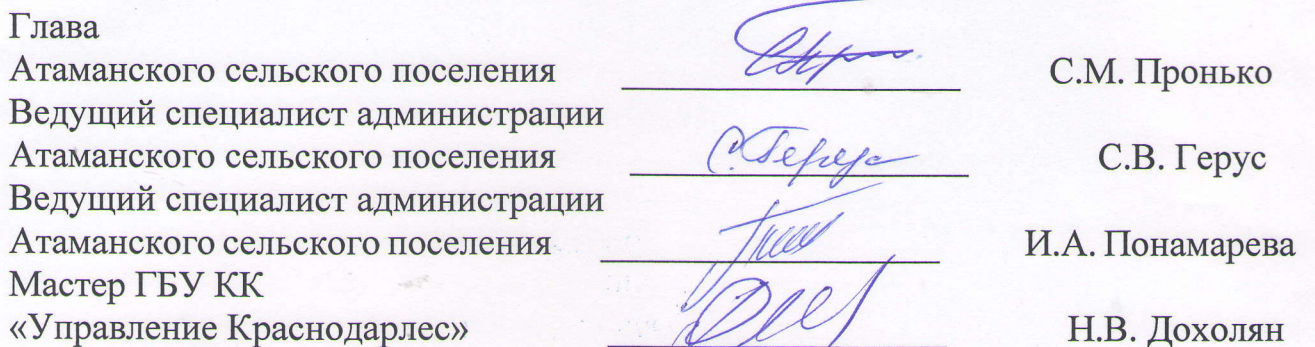 Глава
Атаманского сельского поселения С.М. Пронько
Ведущий специалист администрации
Атаманского сельского поселения С.В. Герус
Ведущий специалист администрации
Атаманского сельского поселения И.А. Понамарева
Мастер ГБУ КК
«Управление Краснодарлес» Н.В. Дохолян